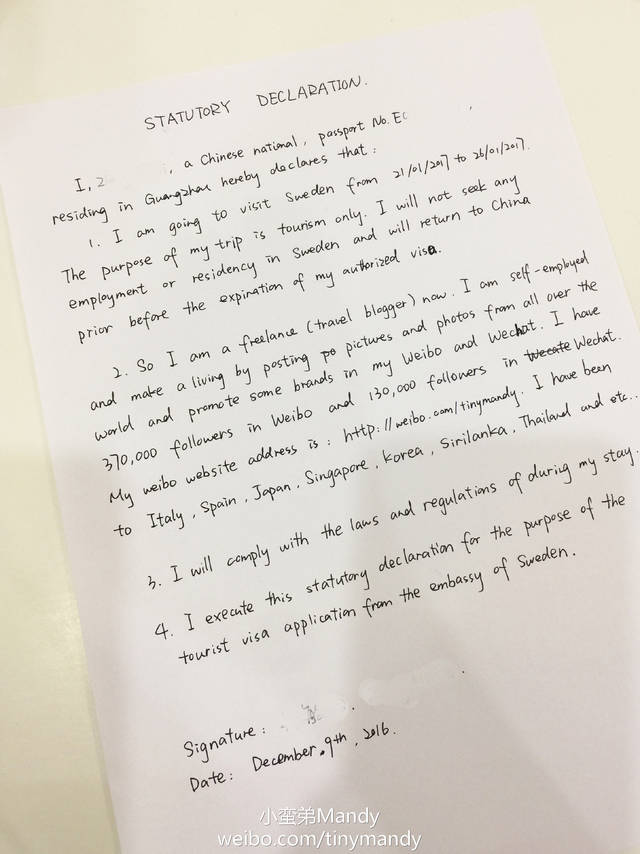 STATUTORY DECLARATION.
I, Z , a Chinese national, passport No. E ,
residing in Guangzhou hereby declares that:
1. I am going to visit Sweden from 21/01/2017 to 26/01/2017.
The purpose of my trip is tourism only. I will not seek any
employment or residency in Sweden and will return to China
prior before the expiration of my authorized visa.
2. So I am a freelance (travel blogger) now. I am self-employed
and make a living by posting po pictures and photos from all over the
world and promote some brands in my Weibo and Wechat. I have
370,000 followers in Weibo and 130,000 followers in Wecate Wechat.
My weibo website address is: http://weibo.com/tinymandy. I have been
to Italy, Spain, Japan, Singapore, Korea, Sirilanka, Thailand and etc..
3. I will comply with the laws and regulations of during my stay.
4. I execute this statutory declaration for the purpose of the
tourist visa application from the embassy of Sweden.
Signature:
Date: December.9th, 2016.
小蛮弟Mandy
weibo.com/tinymandy